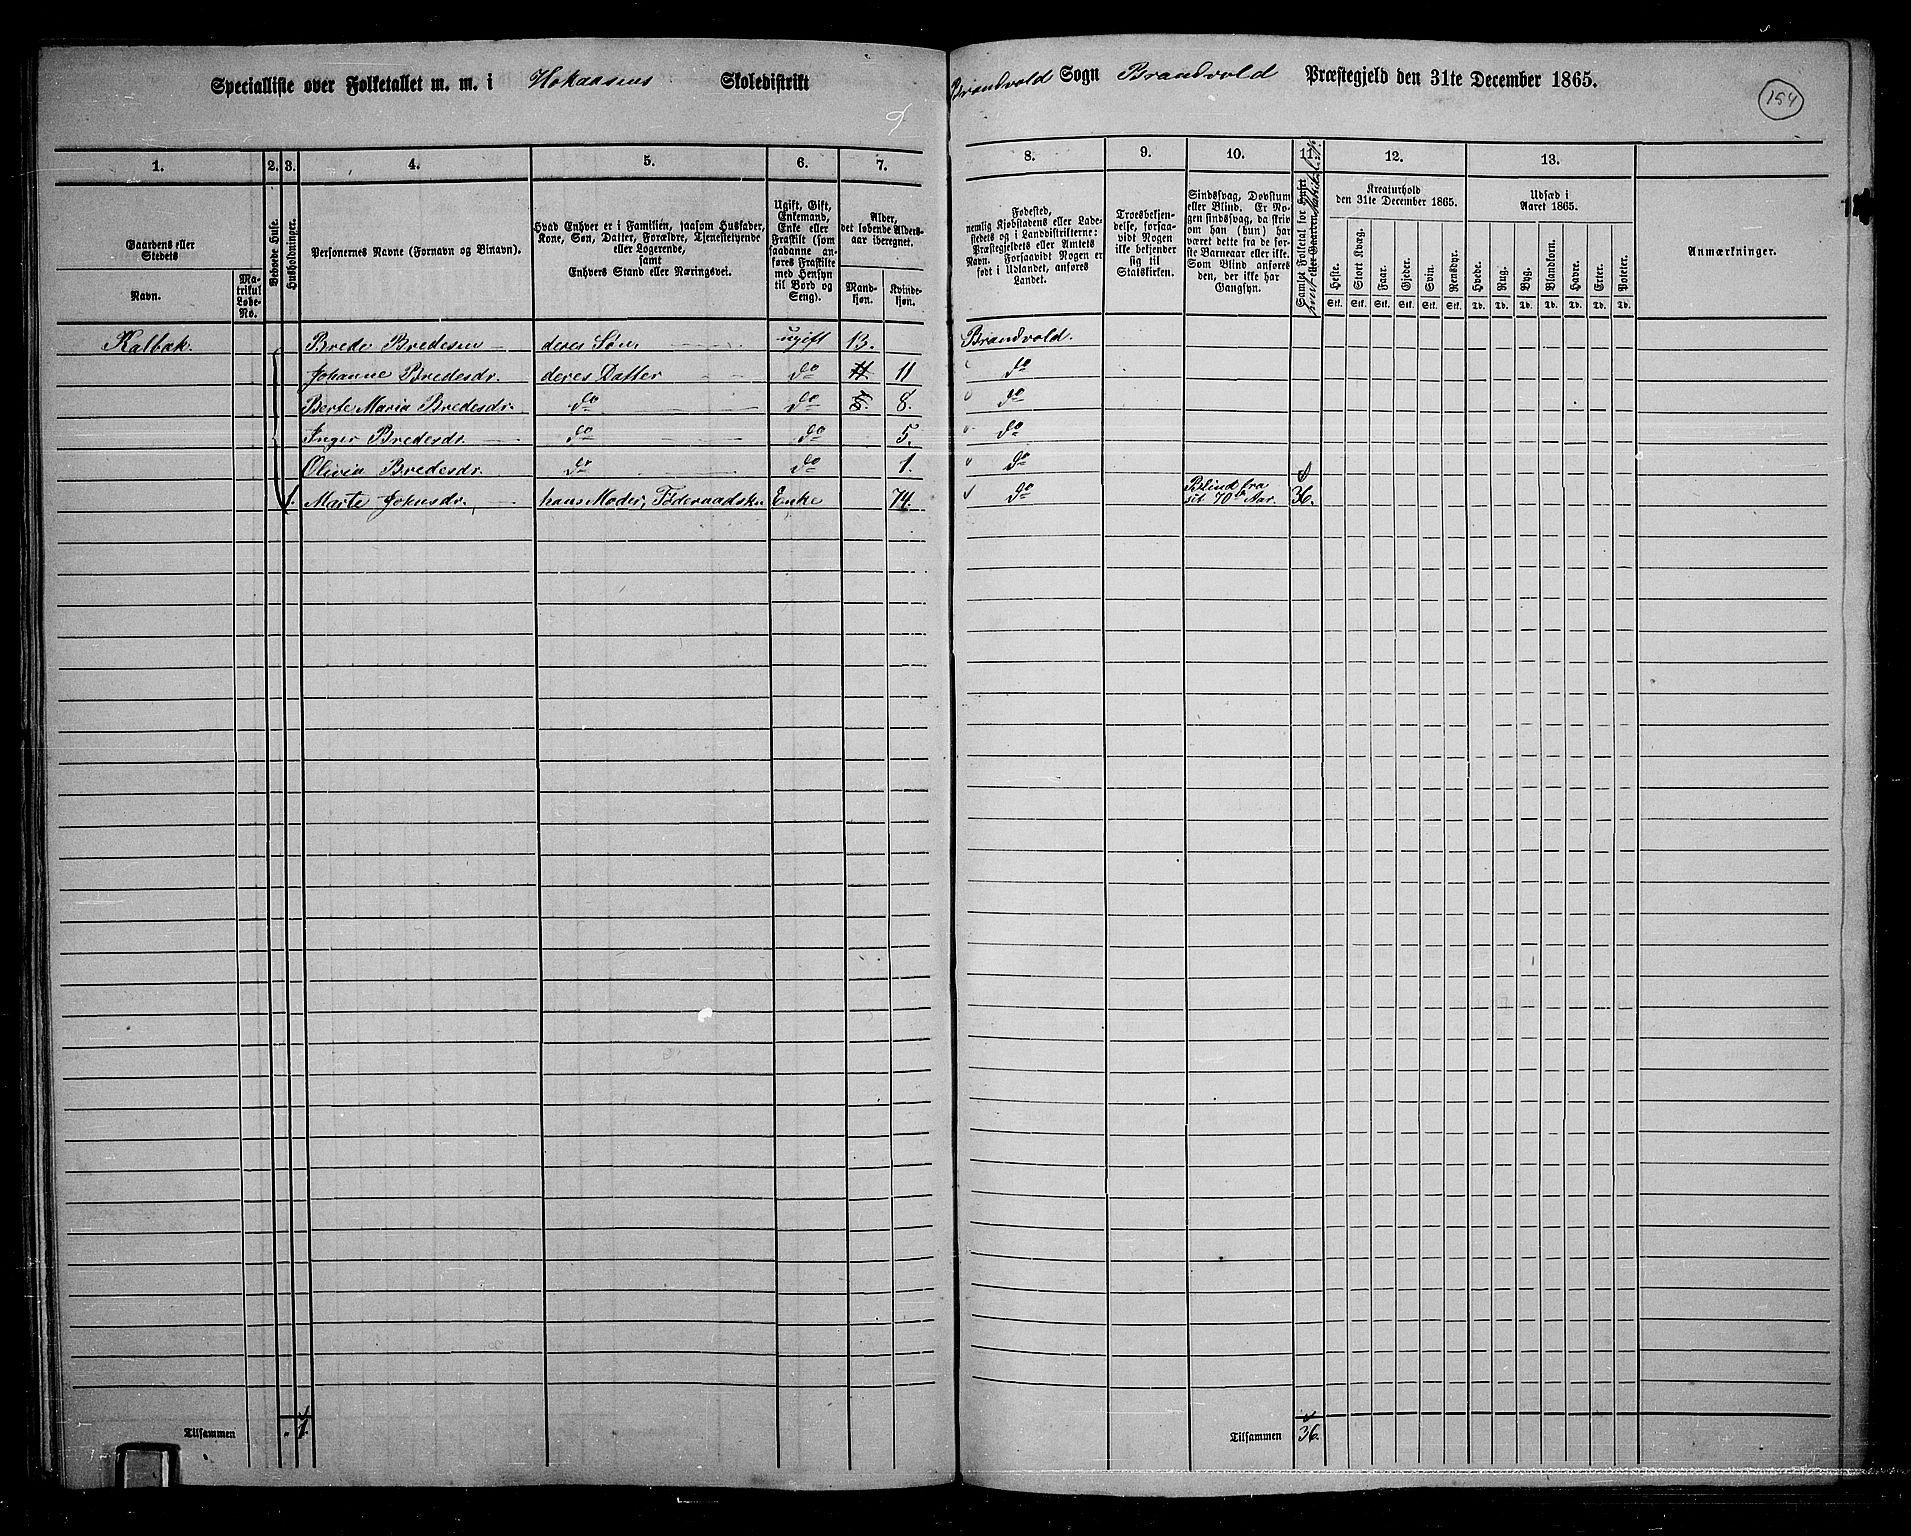 Specialliste over Folketallet m. m. i Hokaasens Skoledistrikt Brandvold Sogn Brandvold Præstegjeld den 31te December 1865.
154
9
1. 2. 3. 4. 5. 6. 7. 8. 9. 10. 11. 12. 13.
Gaardens eller Stedets
Navn.
Matrikul Løbe-No.
Beboede Huse.
Husholdninger.
Personernes Navne (Fornavn og Binavn).
Hvad Enhver er i Familien, saasom Husfader, Kone, Søn, Datter, Forældre, Tjenestetyende eller Logerende, samt Enhvers Stand eller Næringsvei.
Ugift, Gift, Enkemand, Enke eller Fraskilt (som saadanne anføres Fraskilte med Hensyn til Bord og Seng).
Alder, det løbende Alders-aar iberegnet.
Mandkjøn.
Kvindekjøn.
Fødested, nemlig Kjøbstadens eller Ladestedets og i Landdistrikterne: Præstegjeldets eller Amtets Navn. Forsaavidt Nogen er født i Udlandet, anføres Landet.
Troesbekjendelse, forsaavidt Nogen ikke bekjender sig til Statskirken.
Sindssvag, Døvstum eller Blind. Er Nogen sindssvag, da skrives om han (hun) har været dette fra de første Barneaar eller ikke. Som Blind anføres den, der ikke har Gangsyn.
Samlet Folketal for Huset eller Gaarden
Kreaturhold den 31te December 1865.
Heste. Stort Kvæg. Faar. Gjeder. Svin. Rensdyr.
Stk. Stk. Stk. Stk. Stk. Stk.
Udsæd i Aaret 1865.
Hvede. Rug. Byg. Blandkorn. Havre. Erter. Poteter.
Td. Td. Td. Td. Td. Td. Td.
Anmærkninger.
Kalbæk. Brede Bredesen deres Søn ugift 13. Brandvold.
Johanne Bredesdr. deres Datter do 11 11 do
Berte Maria Bredesdr. do do 5. 8. do
Inger Bredesdr. do do 5. do
Olivia Bredesdr. do do 1. do
1. Marte Johnsdr. hans Moder, Føderaadsk. Enke 74. do Blind fra sit 70de Aar. 36.
Tilsammen 1. Tilsammen 36.